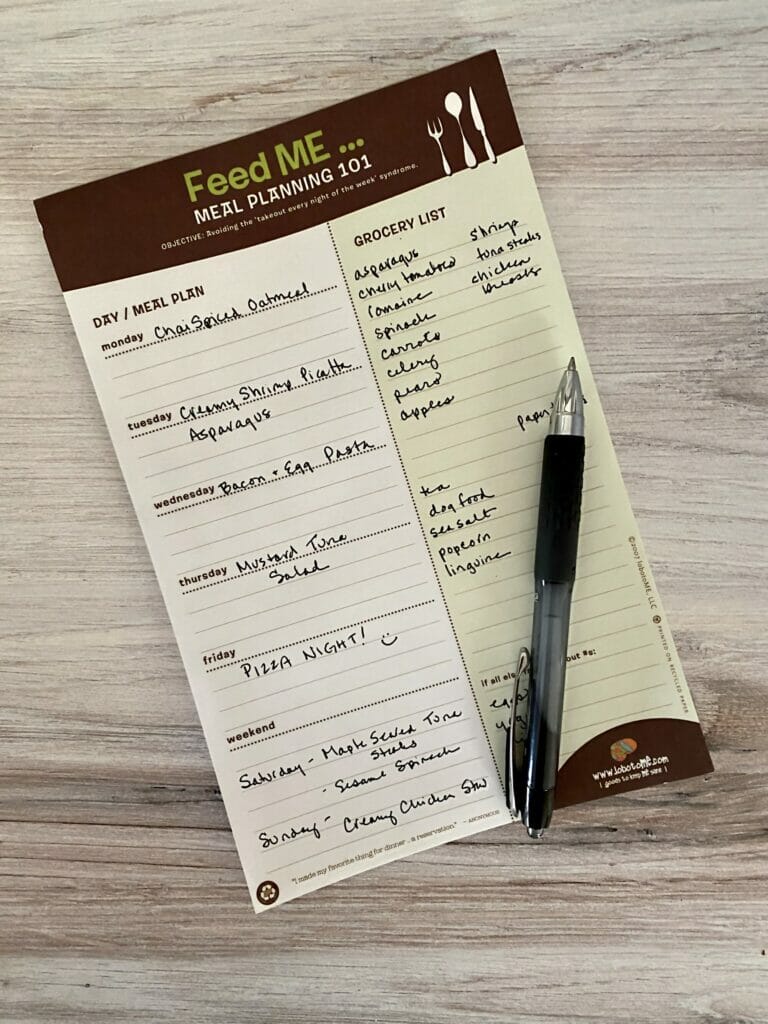 Feed ME ...
MEAL PLANNING 101
OBJECTIVE: Avoiding the 'takeout every night of the week' syndrome.
DAY / MEAL PLAN
monday Chai Spiced Oatmeal
tuesday Creamy Shrimp Picatta
Asparagus
wednesday Bacon + Egg Pasta
thursday Mustard Tuna
Salad
friday
PIZZA NIGHT!
weekend
Saturday - Maple Seared Tuna
Steaks
- Sesame Spinach
Sunday - Creamy Chicken Stw
"I made my favorite thing for dinner .. a reservation." - ANONYMOUS
GROCERY LIST
asparagus
cherry tomatoes
romaine
spinach
carrots
celery
pears
apples
shrimp
tuna steaks
chicken
breasts
tea
dog food
sea salt
popcorn
linguine
if all els
out #s:
©2007 lobotoME, LLC
PRINTED ON RECYCLED PAPER
www.lobotoME.com
[ goods to keep ME sane ]